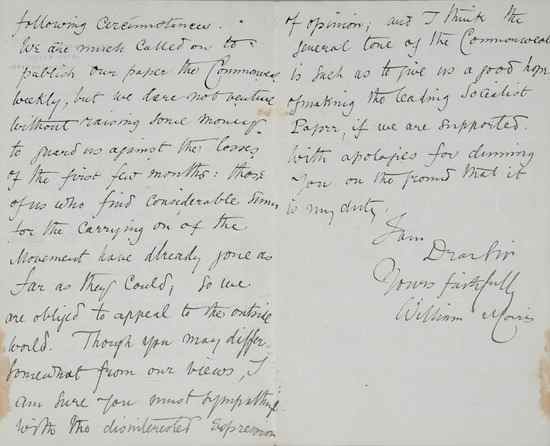 following circumstances.
We are much called on to
publish our paper the Commonweal
weekly, but we dare not venture
without raising some money
to guard us against the losses
of the first few months: those
of us who find considerable sums
for the carrying on of the
Movement have already gone as
far as they could; so we
are obliged to appeal to the outside
world. Though you may differ
somewhat from our views, I
am sure you must sympathise
with the disinterested expression
of opinion; and I think the
general tone of the Commonweal
is such as to give us a good hope
of making the leading Socialist
Paper, if we are supported.
With apologies for dunning
you on the ground that it
is my duty,
I am
Dear Sir
Yours faithfully
William Morris